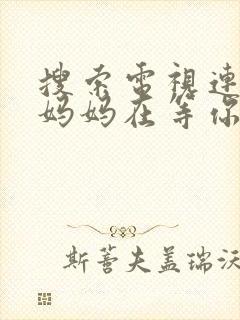 搜索電視連
妈妈在等你
斯蒈夫盖瑞沃